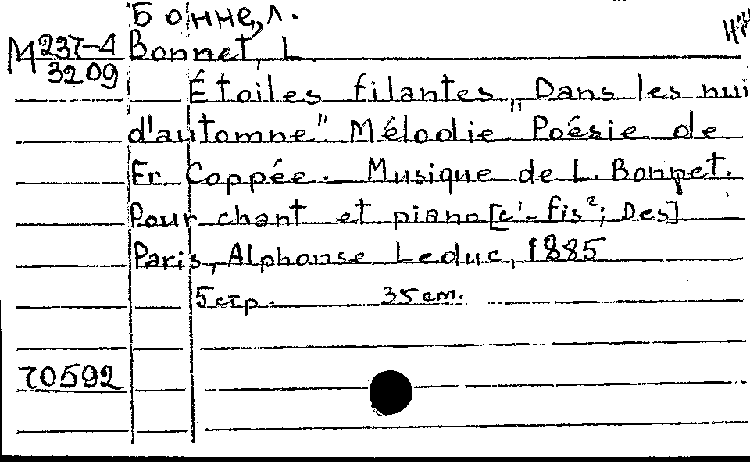 Бонне, Л.
M 237-4
3209
Bonnet, L.
Étoiles filantes „Dans les nui
d'automne" Mélodie Poésie de
Fr. Coppée. Musique de L. Bonnet.
Pour chant et piano [c¹-fis²; Des]
Paris, Alphonse Leduc, 1885
5 стр. 35 cm.
70592